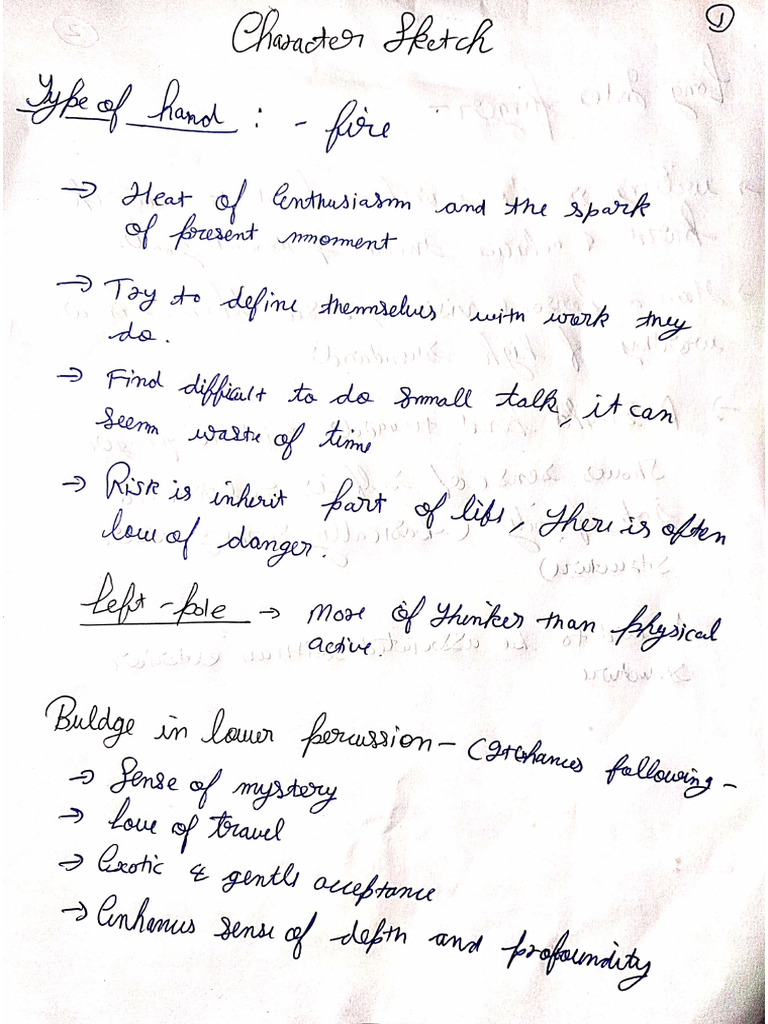 1
Character Sketch
Type of hand : - fire
→ Heat of Enthusiasm and the spark
of present mmoment
→ Try to define themselves with work they
do.
→ Find difficult to do small talk, it can
seem waste of time
→ Risk is inherit part of life, There is often
love of danger.
Left - pole → More of thinker than physical
active.
Buldge in lower percussion - following -
→ Sense of mystery
→ Love of travel
→ Exotic & gentle acceptance
→ Enhances sense of depth and profoundity